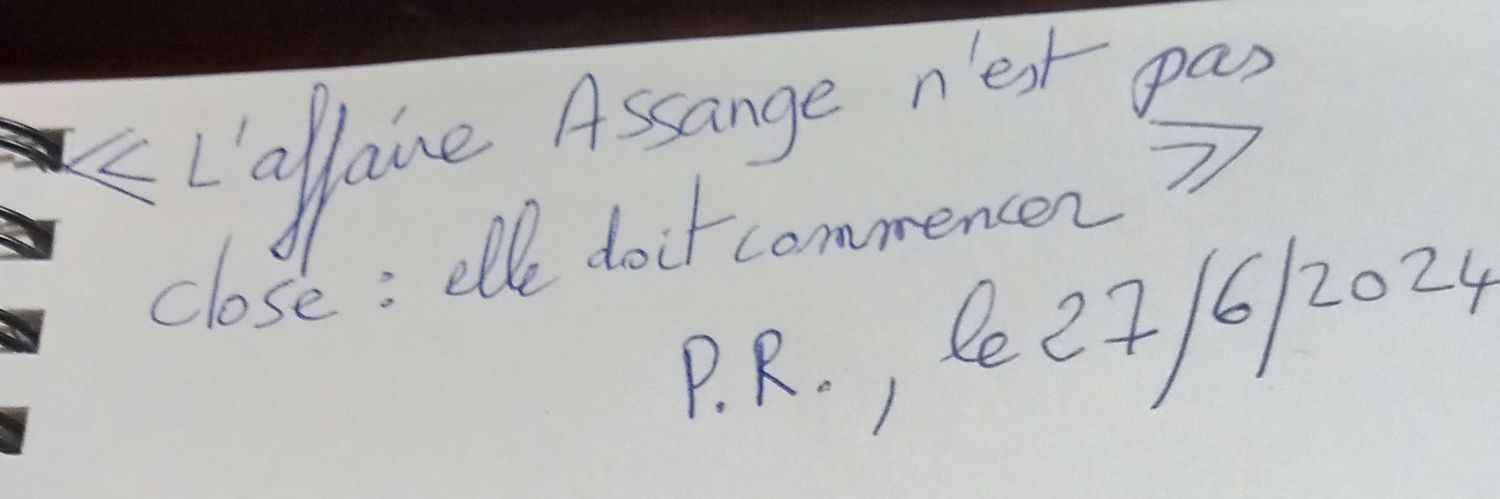 « L'affaire Assange n'est pas
close : elle doit commencer »
P.R., le 27/6/2024